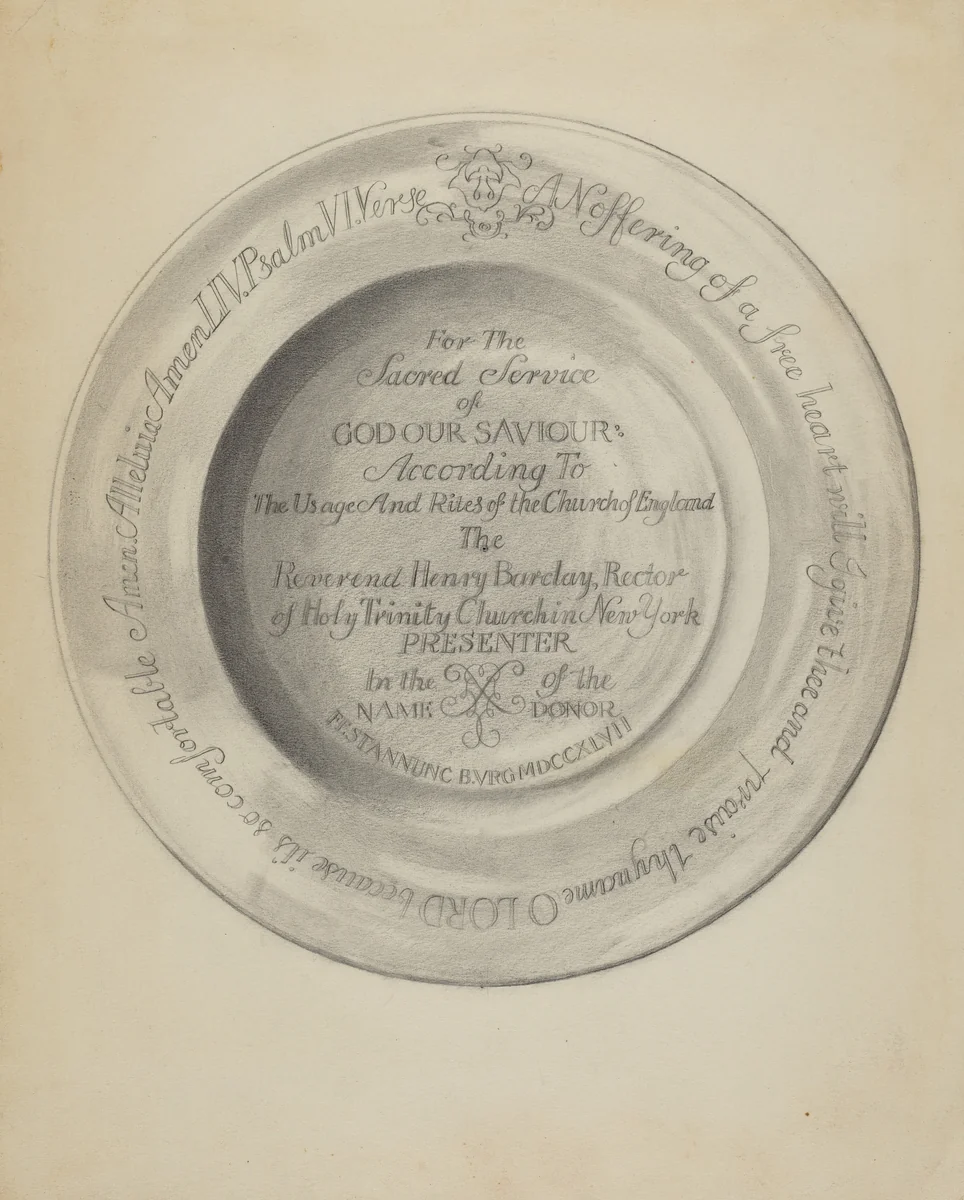 AN offering of a free heart will I give thee and praise thy name O LORD because its so comfortable Amen. Alleluia Amen LIV. Psalm VI. Verse
For The
Sacred Service
of
GOD OUR SAVIOUR:
According To
The Usage And Rites of the Church of England
The
Reverend Henry Barclay, Rector
of Holy Trinity Church in New York
PRESENTER
In the of the
NAME DONOR
FESTANNUNC B.VRG MDCCXLVII